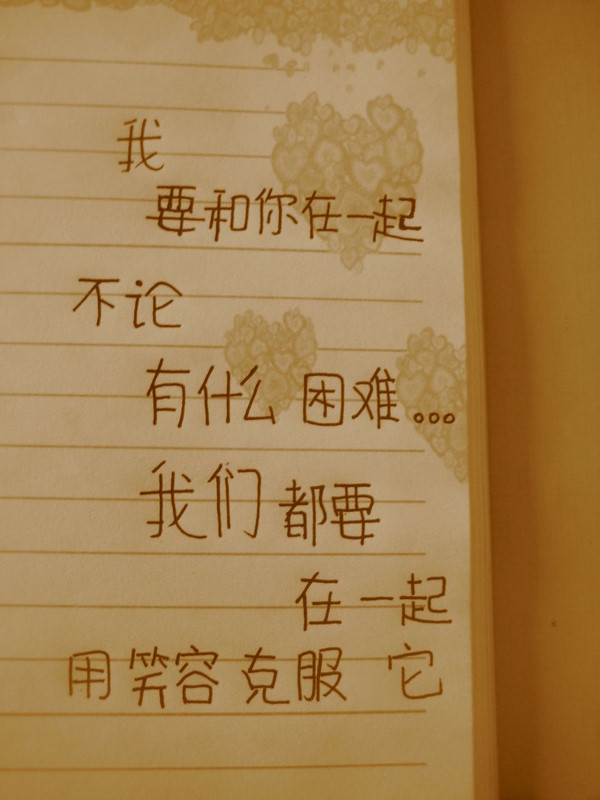 我
要和你在一起
不论
有什么困难...
我们都要
在一起
用笑容克服它